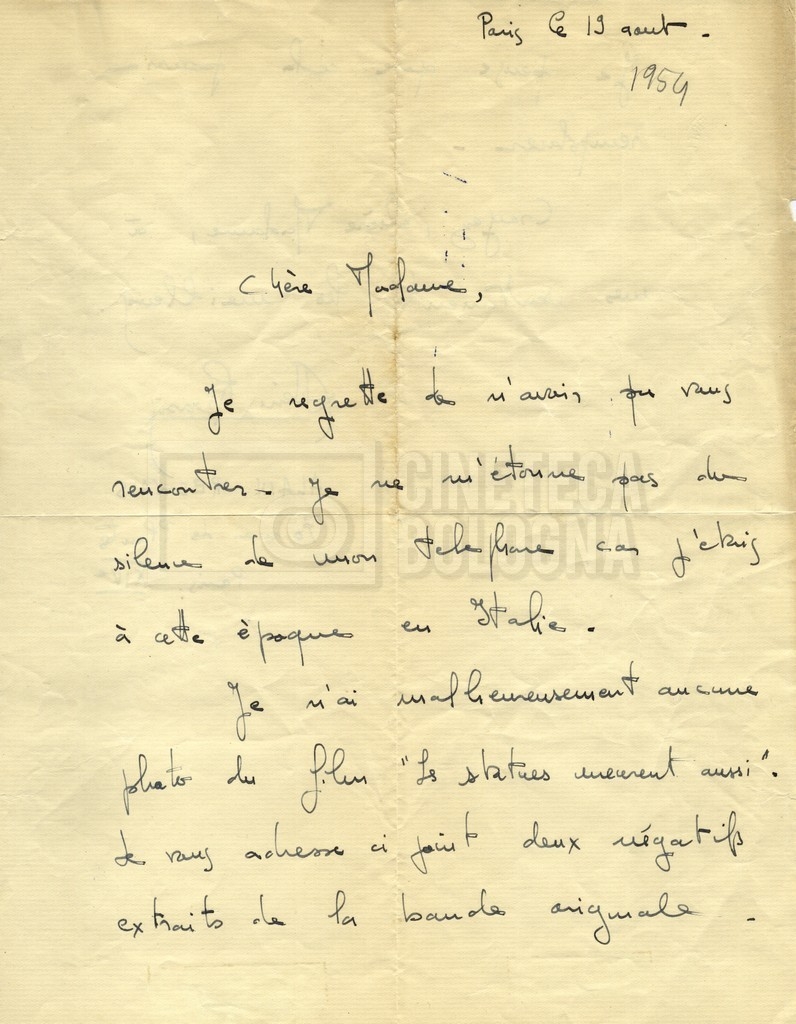 Paris le 19 aout.
1954
Chère Madame,
Je regrette de n'avoir pu vous
rencontrer. Je ne m'étonne pas du
silence de mon telephone car j'étais
à cette époque en Italie.
Je n'ai malheureusement aucune
photo du film "Les statues meurent aussi".
Je vous adresse ci joint deux négatifs
extraits de la bande originale.
CINETECA
BOLOGNA